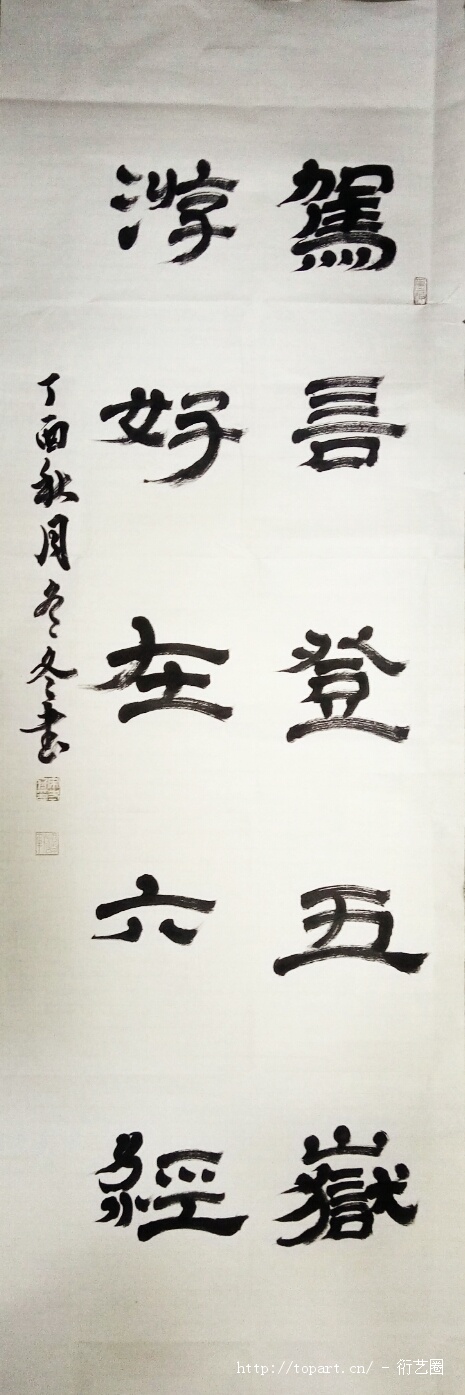 駕言登五嶽
游好在六經
丁酉秋月冬冬書
http://topart.cn/ - 衍艺圈